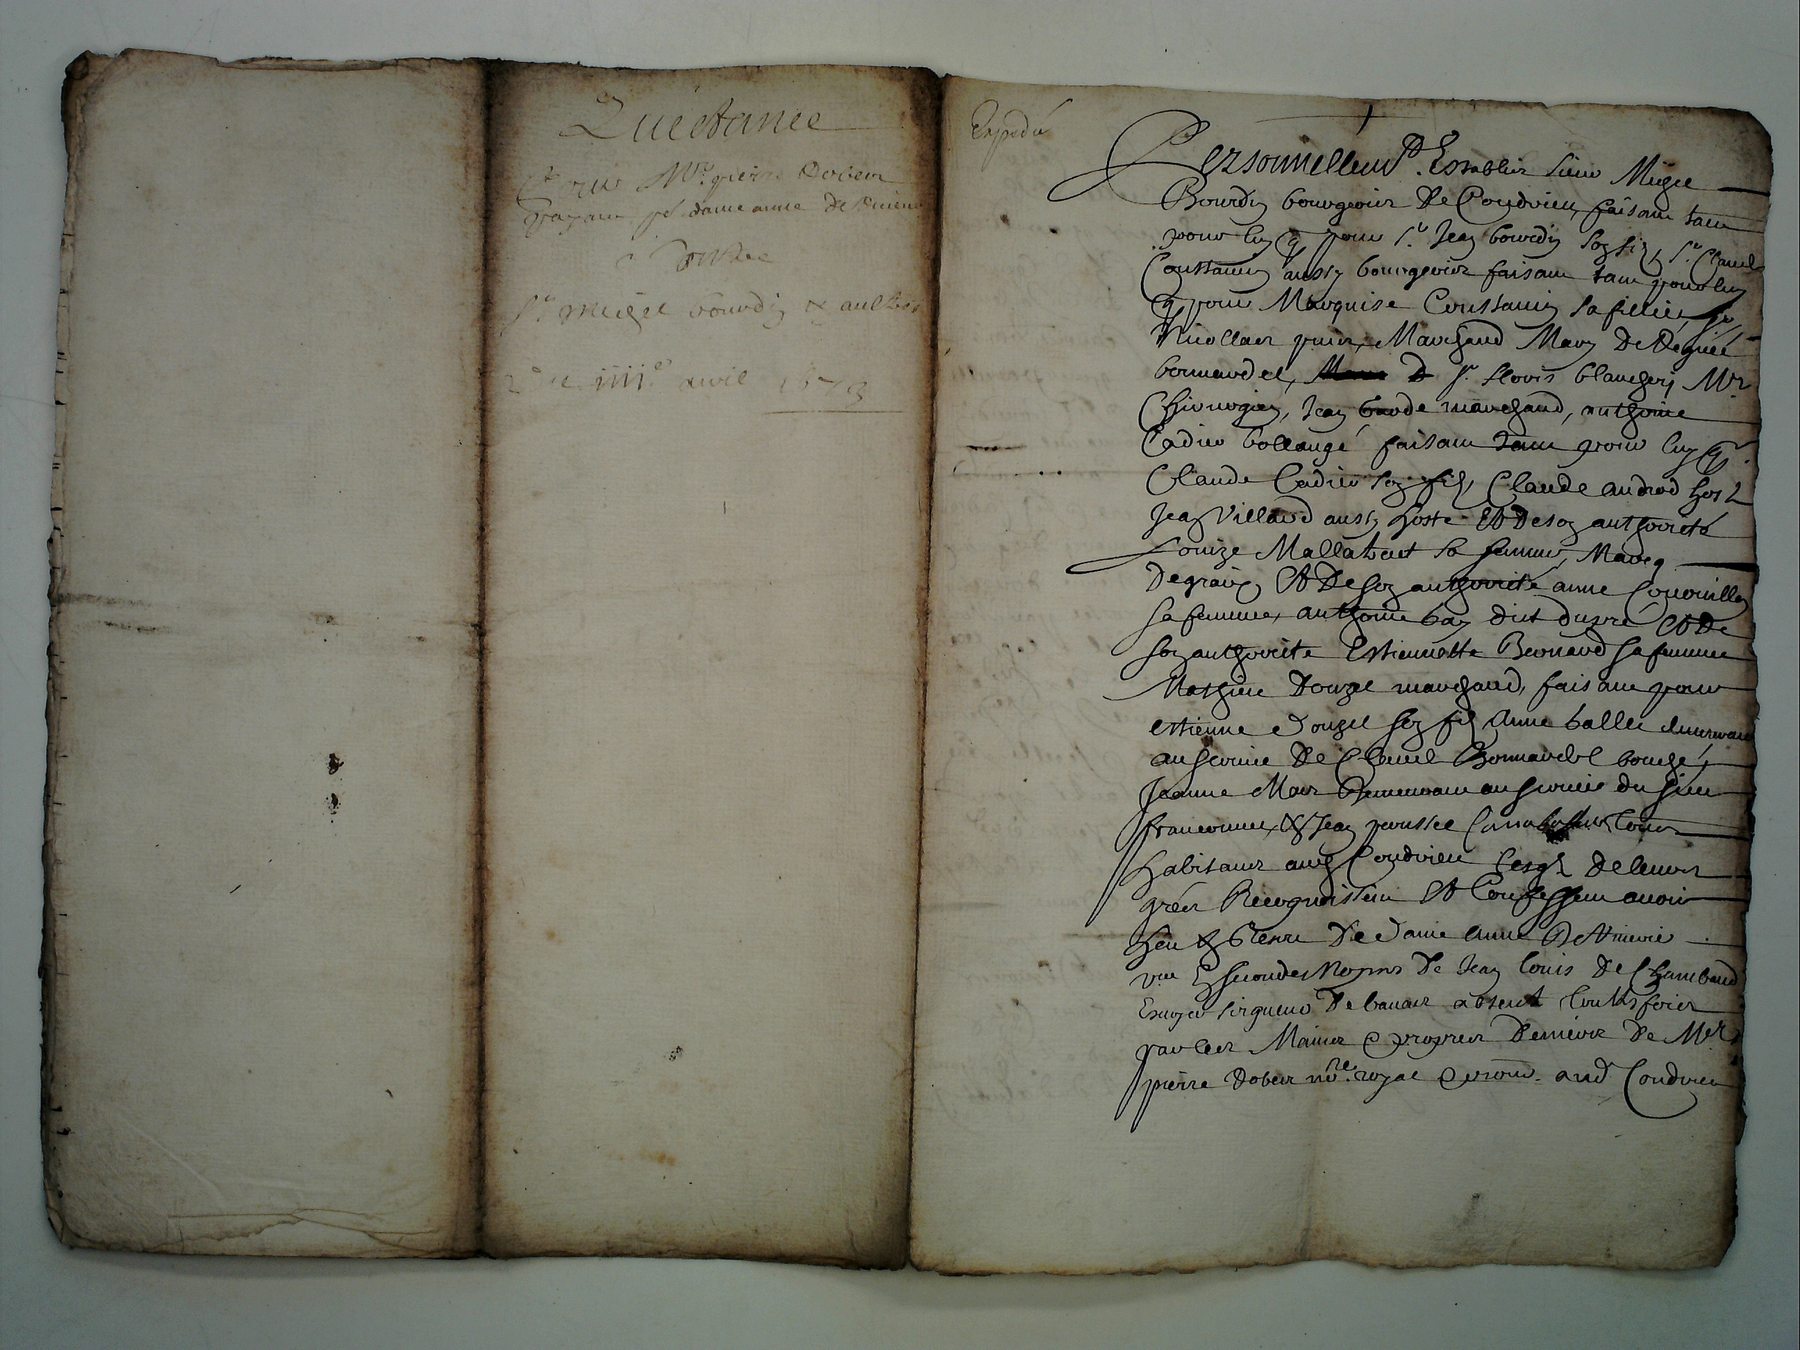 Quictance
Pour Mre pierre Dobeur
payant pr dame anne de
Contre
Sr Migel bourdin & aultres
Du iiiie avril 1673
Expedié
Personnellemt Establis sieur Migel
Bourdin bourgeois De Condrieu faisant tant
pour luy q pour Sr Jean bourdin son filz, Sr Claude
Coustanin aussy bourgeois faisant tant pour luy
q pour Marquise Coustanin sa fillie, Sr
Nicollas Marchand Mary De
bonnardel, Sr Blanchery Mre
Chirurgien, Jean marchand, anthoine
Cadier bollangé faisant tant pour luy q
Claude Cadier son filz, Claude androd hoste
Jean Villard aussy hoste Et De son authorité
Louize Mallabert sa femme, Marq
Degraix Et De son authorité anne
sa femme, anthoine bay dict dupré Et De
son authorité Estiennette Bernard sa femme
Mathieu Donzel marchand, faisant pour
estienne Donzel son filz Anne ballie demeurant
au service De Claude Bonnardel bouché,
Jeanne Mars Demeurant au service du sieur
& Jean tous
habitans aud Condrieu Lesqls De leurs
grés Recognoissent Et Confessent avoir
heu & Receu De Dame Anne De
De Jean Louis De Chambaud
Escuyer seigneur De bavas absent touttesfois
par les Mains & propres Deniers De Mre
pierre Dobeur nore royal & prour aud Condrieu